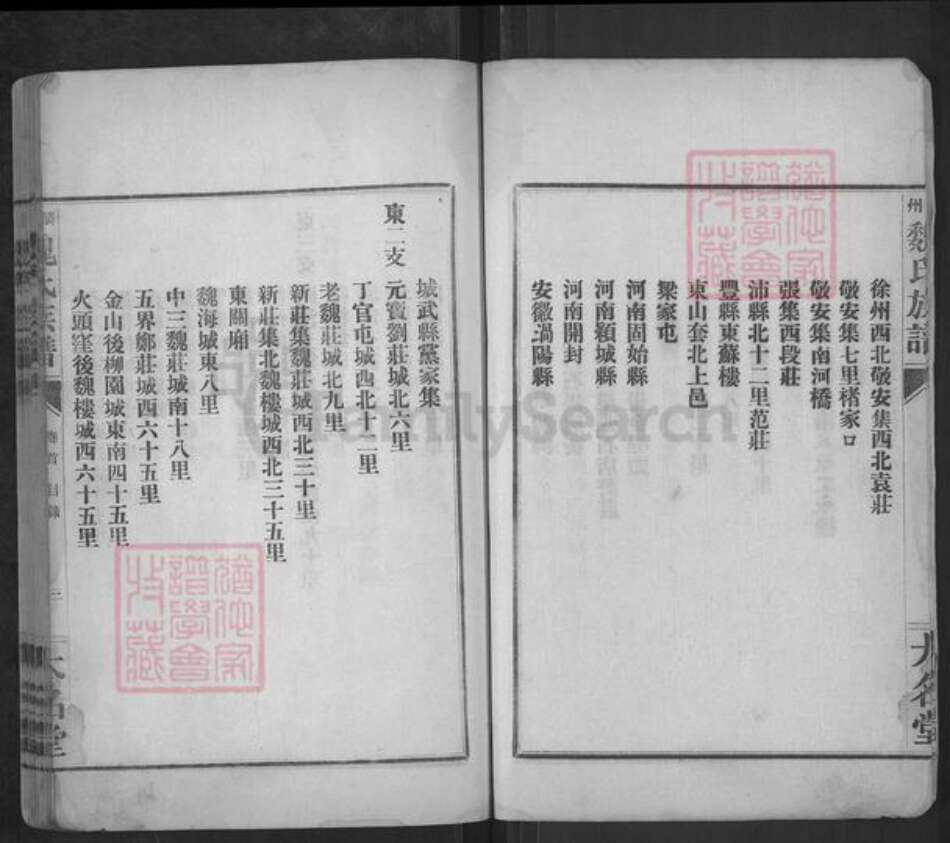 州魏氏族譜
大名堂
徐州西北敬安集西北袁莊
敬安集七里褚家口
敬安集南河橋
張集西段莊
沛縣北十二里范莊
豐縣東蘇樓
東山套北上邑
梁家屯
河南固始縣
河南潁城縣
河南開封
安徽渦陽縣
城武縣黨家集
東二支 元寶劉莊城北六里
丁官屯城西北十二里
老魏莊城北九里
新莊集魏莊城西北三十里
新莊集北魏樓城西北三十五里
東關廂
魏海城東八里
中三魏莊城南十八里
五界鄭莊城西六十五里
金山後柳園城東南四十五里
火頭窪後魏樓城西六十五里
魏氏族譜
卷首 目錄
三
大名堂
FamilySearch
譜學會
收藏
譜學會
收藏